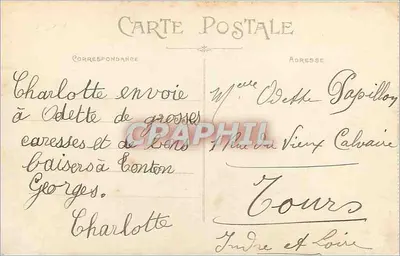 CARTE POSTALE
CORRESPONDANCE
Charlotte envoie
à Odette de grosses
caresses et de bons
baisers à tonton
Georges.
Charlotte
ADRESSE
Melle Odette Papillon
Rue du Vieux Calvaire
Tours
Indre et Loire
CPAPHIL